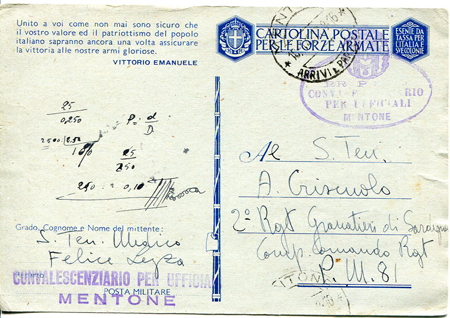 Unito a voi come non mai sono sicuro che
il vostro valore ed il patriottismo del popolo
italiano sapranno ancora una volta assicurare
la vittoria alle nostre armi gloriose.
VITTORIO EMANUELE
CARTOLINA POSTALE
PER LE FORZE ARMATE
ESENTE DA
TASSA PER
L'ITALIA E
ARRIVI E PAR
PER UFFICIALI
MENTONE
25
0,250
P. d
D
25
250
250 = 0,10
Grado, Cognome e Nome del mittente:
S. Ten. Marco
Felice
CONVALESCENZIARIO PER UFFICIA
MENTONE
POSTA MILITARE
Al S. Ten.
A.
2° Rgt Granatieri di
Comp. Comando Rgt
P.M. 81